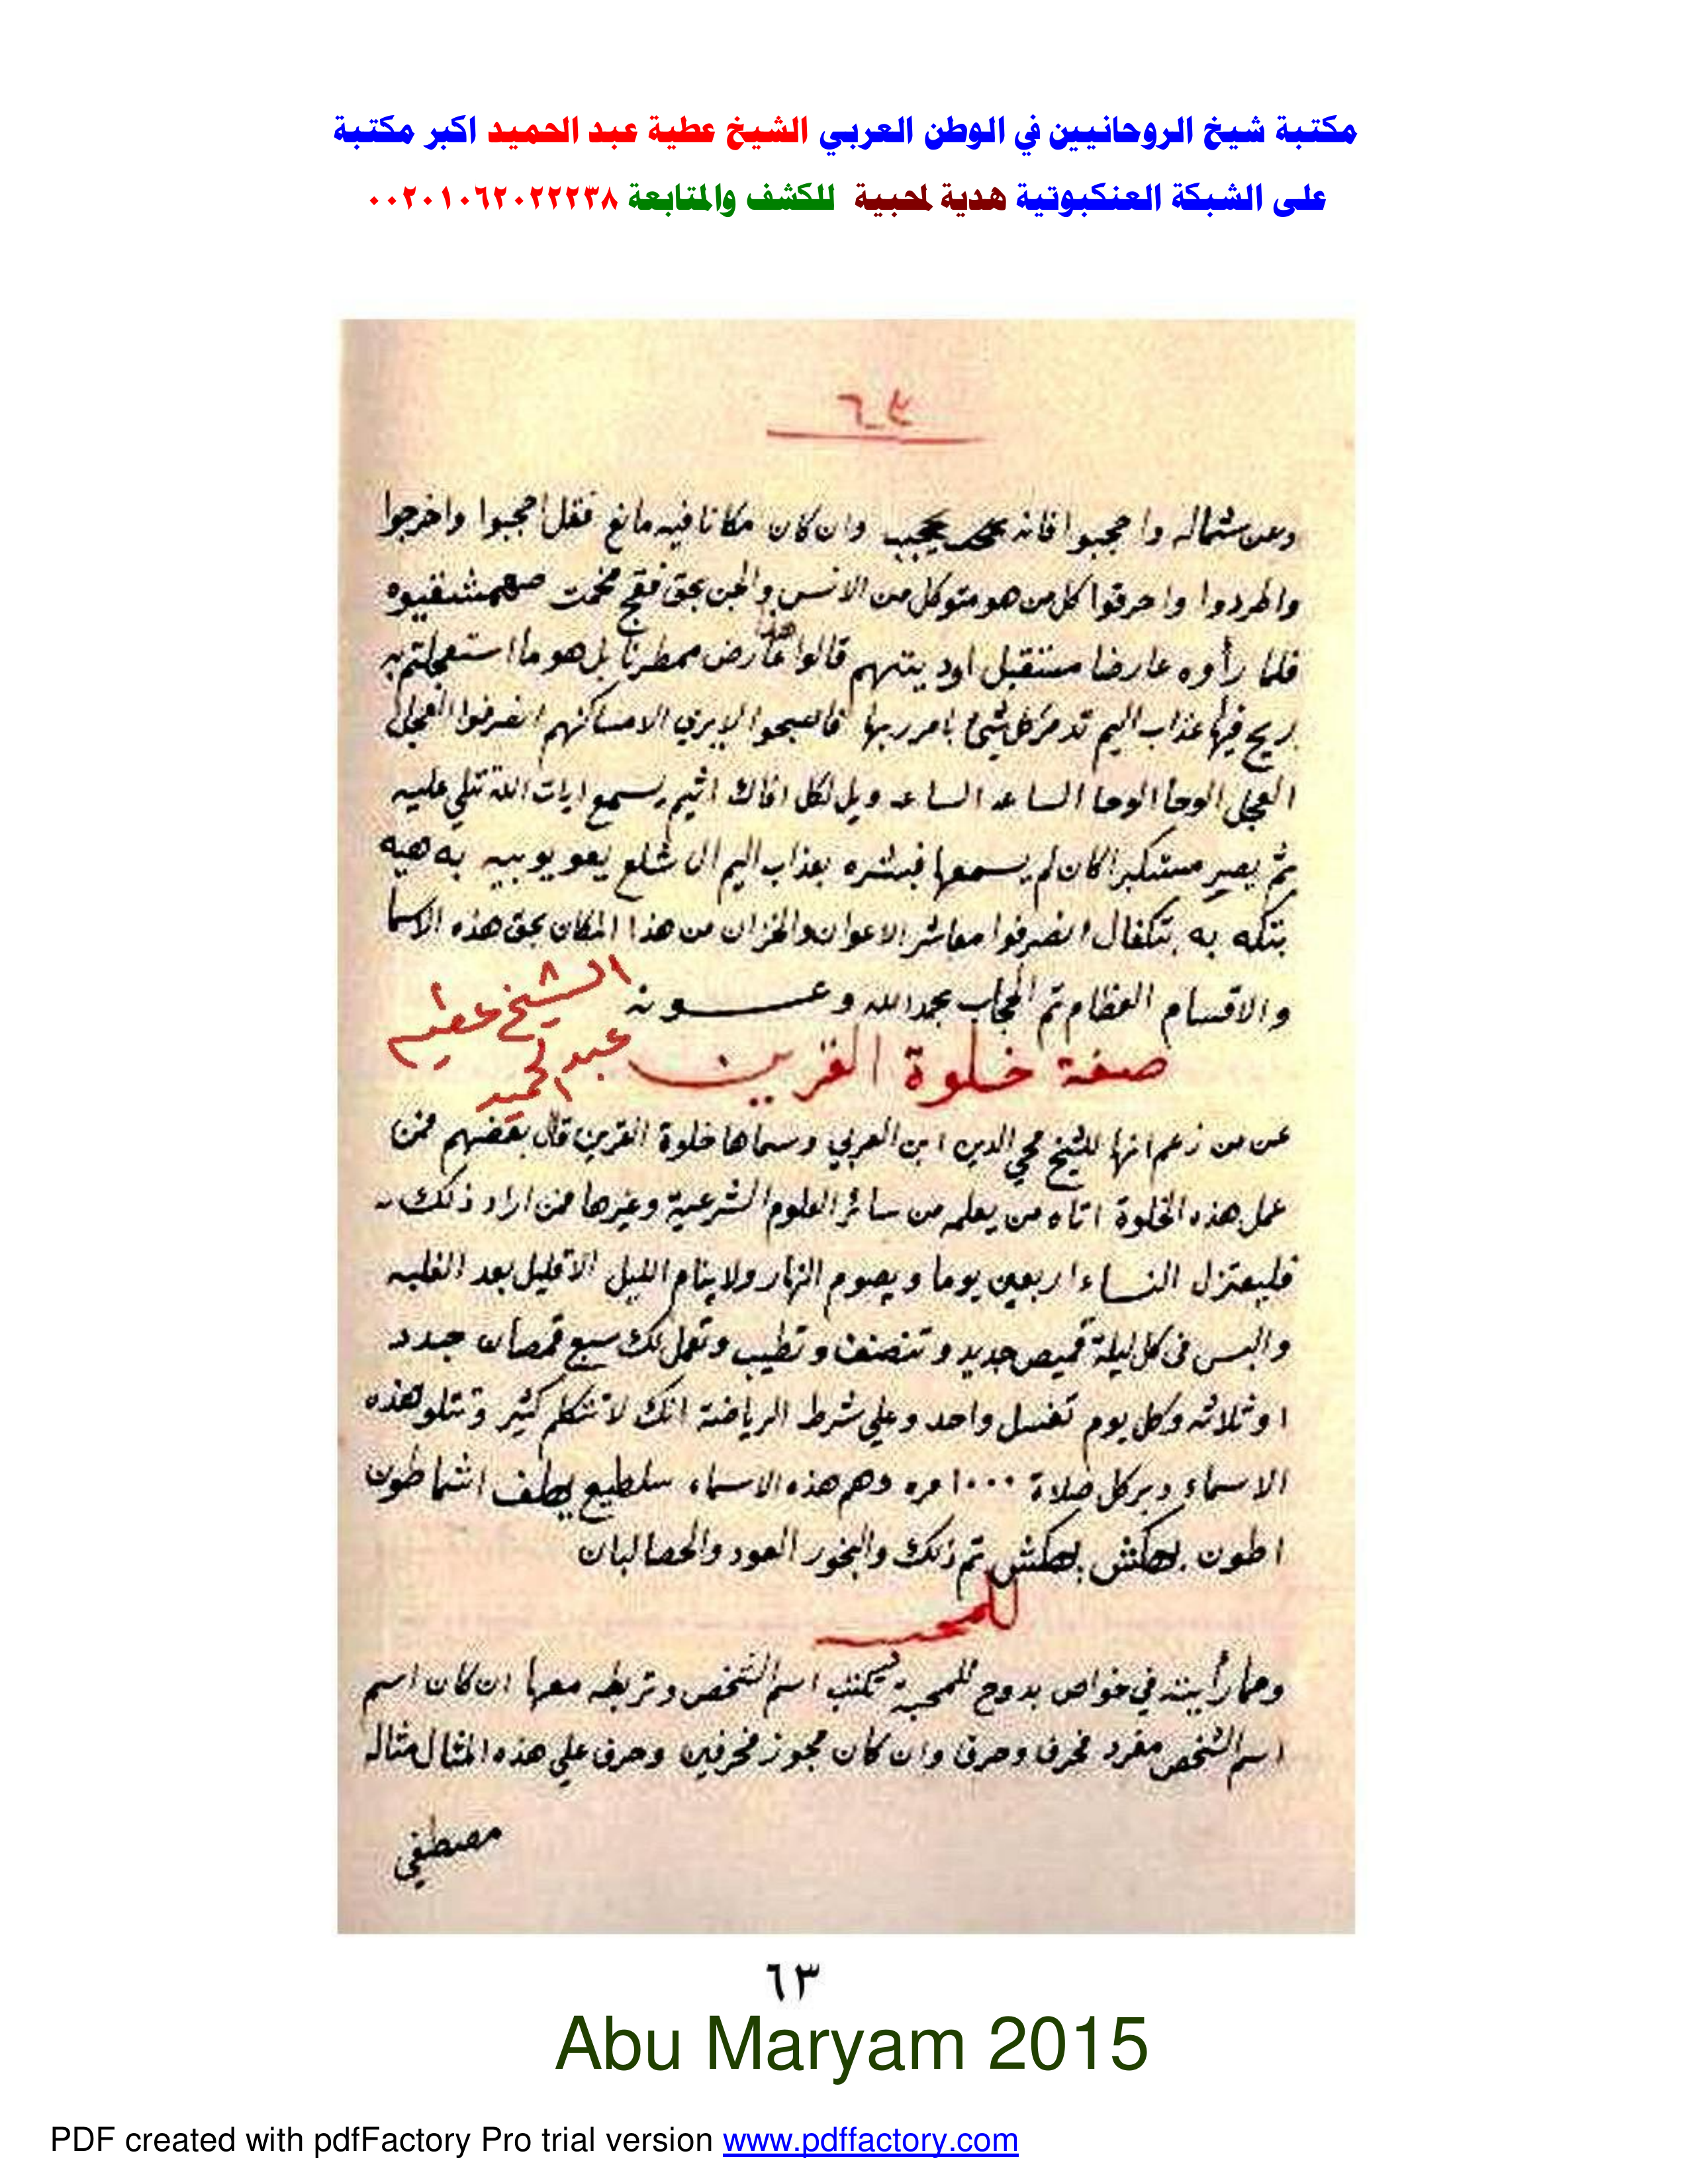 مكتبة شيخ الروحانيين في الوطن العربي الشيخ عطية عبد الحميد اكبر مكتبة
على الشبكة العنكبوتية هدية لمحبية للكشف والمتابعة ٠٠٢٠١٠٦٢٠٢٢٢٣٨
٦٣
وعن شماله واحجبوا فانه يحجب وان كان مكانا فيه مانع فقل احجبوا واخرجوا
واطردوا واحرقوا كل من هو متوكل من الانس والجن بحق فقج مخمت
فلما رأوه عارضا مستقبل اوديتهم قالوا هذا عارض ممطرنا بل هو ما استعجلتم به
ريح فيها عذاب اليم تدمر كل شئ بامر ربها فاصبحوا لا يرى الا مساكنهم انصرفوا العجل
العجل الوحا الوحا الساعه الساعه ويل لكل افاك اثيم يسمع ايات الله تتلى عليه
ثم يصر مستكبرا كان لم يسمعها فبشره بعذاب اليم ال شلع يعو يوبيه به هيه
بتكه به بتكفال انصرفوا معاشر الاعوان والخزان من هذا المكان بحق هذه الاسما
والاقسام العظام تم الحجاب بحمد الله وعونه
الشيخ عطيه
عبد الحميد
صفة خلوة القرين
عن من زعم انها للشيخ محي الدين ابن العربي وسماها خلوة القرين قال بعضهم فمن
عمل هذه الخلوة اتاه من يعلمه من سائر العلوم الشرعية وغيرها فمن اراد ذلك
فليعتزل النساء اربعين يوما ويصوم النهار ولا ينام الليل الا قليل بعد الغلبه
والبس في كل ليلة قميص جديد وتنضف وتطيب وتعمل لك سبع قمصان جدد
اوثلاثه وكل يوم تغسل واحد وعلي شرط الرياضة انك لا تتكلم كثير وتتلو هذه
الاسماء دبر كل صلاة ١٠٠٠ مره وهم هذه الاسماء سلطيع يطف اشماطون
اطون بهكش بهكش تم ذلك والبخور العود والحصالبان
للمحبه
ومما رأيته في خواص بدوح للمحبة تكتب اسم الشخص وتربطه معها ان كان اسم
اسم الشخص مفرد فحرف وحرف وان كان مجوز فحرفين وحرف علي هذه المثال مثاله
مصطفي
٦٣
Abu Maryam 2015
PDF created with pdfFactory Pro trial version www.pdffactory.com